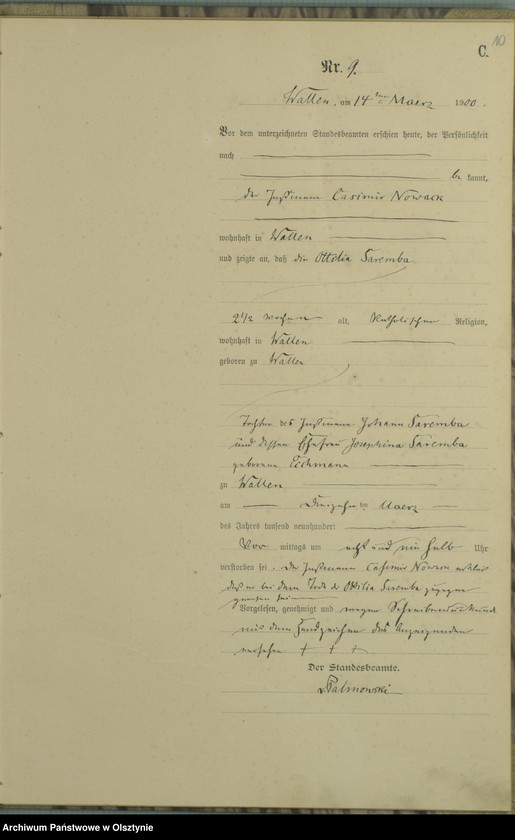 10
C.
Nr. 9.
Wallen, am 14ten Maerz 1900.
Vor dem unterzeichneten Standesbeamten erschien heute, der Persönlichkeit
nach
be kannt,
der Instmann Casimir Nowack
wohnhaft in Wallen
und zeigte an, daß die Ottilia Saremba
2 1/2 Wochen alt, Katholischer Religion,
wohnhaft in Wallen
geboren zu Wallen
Tochter des Instmann Johann Saremba
und dessen Ehefrau Josephina Saremba
geborene
zu Wallen
am Dreizehnten Maerz
des Jahres tausend neunhundert
Vor mittags um acht und ein halb Uhr
verstorben sei. Der Instmann Casimir Nowack erklärt
daß er bei dem Tode der Ottilia Saremba zugegen
gewesen sei
Vorgelesen, genehmigt und wegen Schreibensunkunde
mit dem Handzeichen des Anzeigenden
versehen + + +
Der Standesbeamte.
v Palmowski
Archiwum Państwowe w Olsztynie